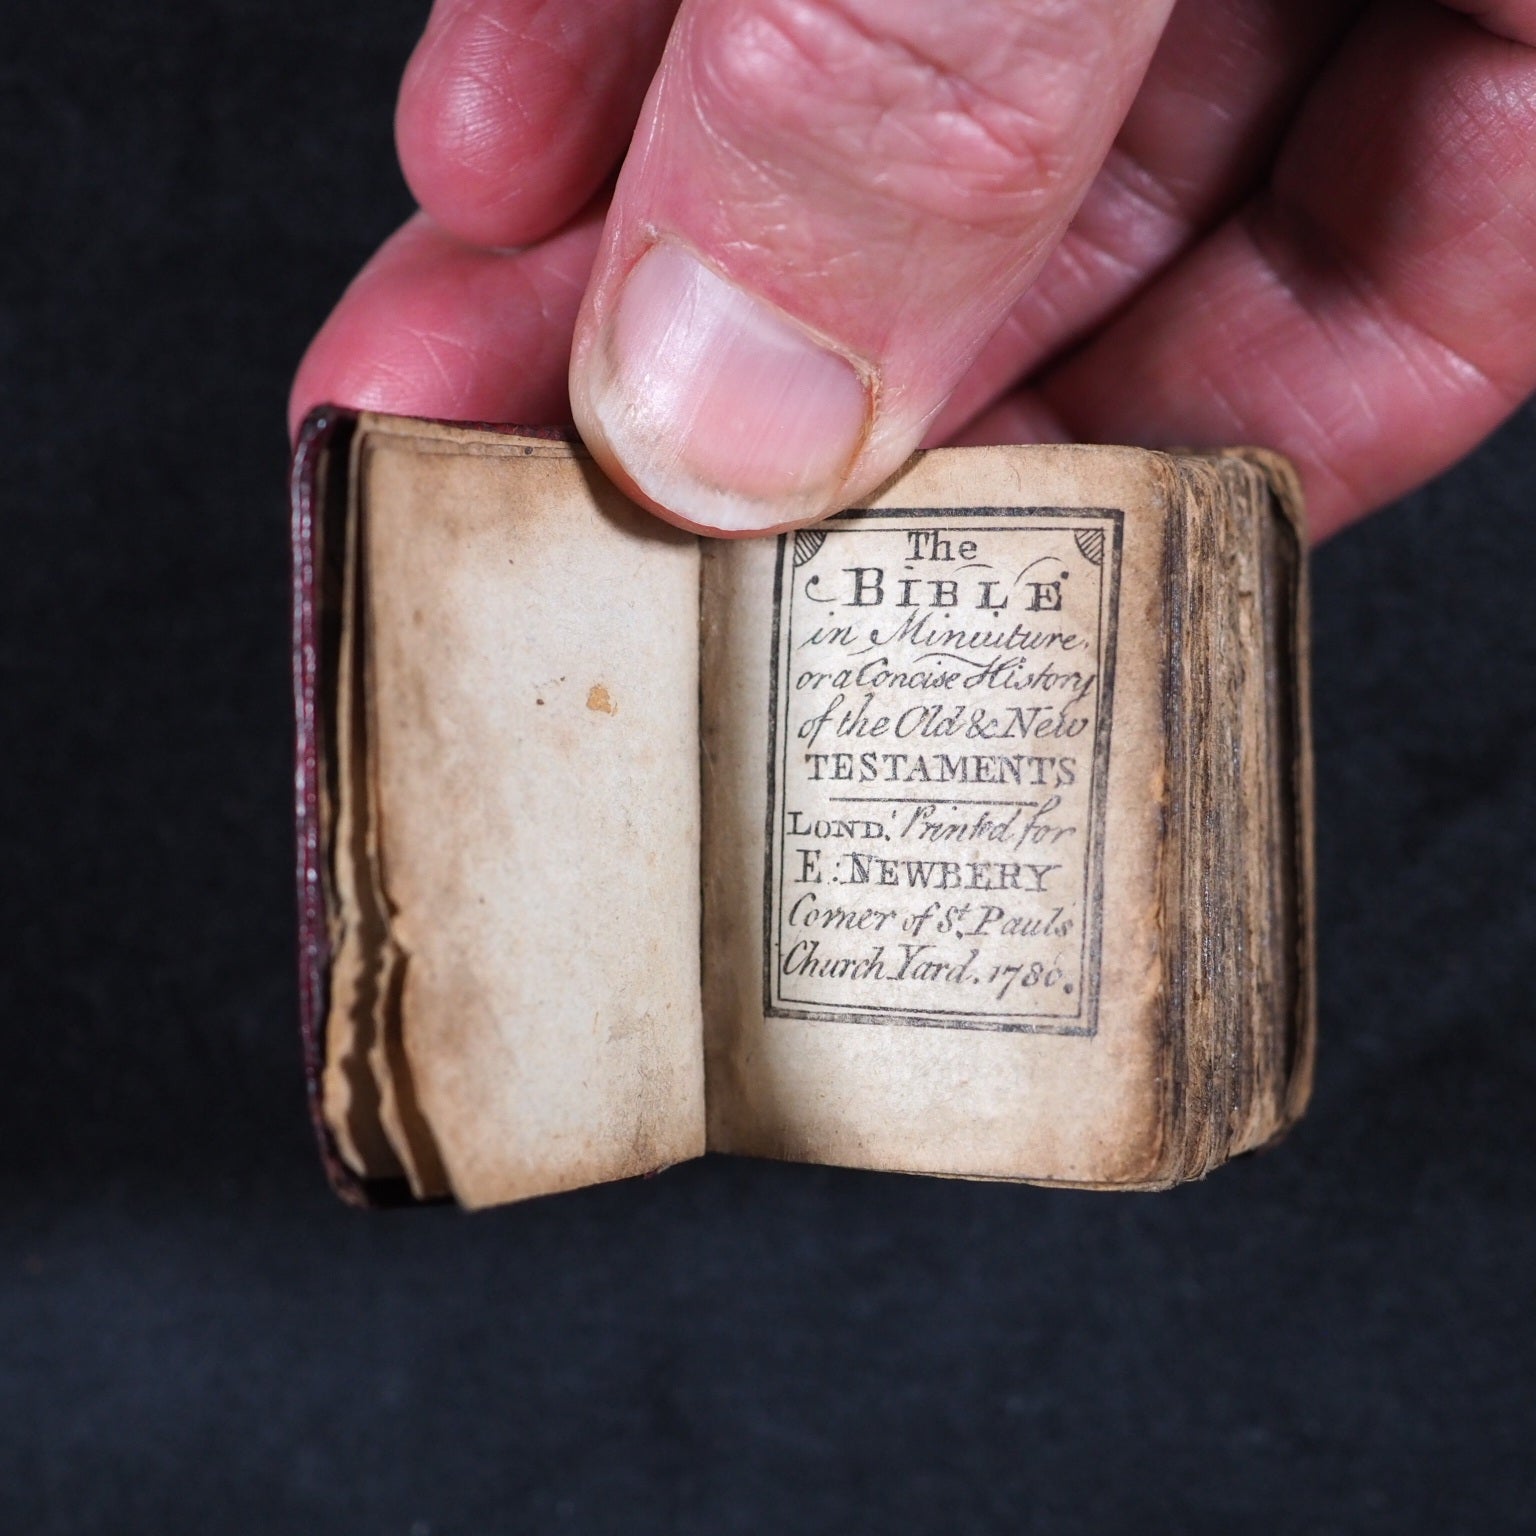 The
BIBLE
in Miniuture.
or a Concise History
of the Old & New
TESTAMENTS
LOND. Printed for
E: NEWBERY
Corner of St. Pauls
Church Yard. 1780.